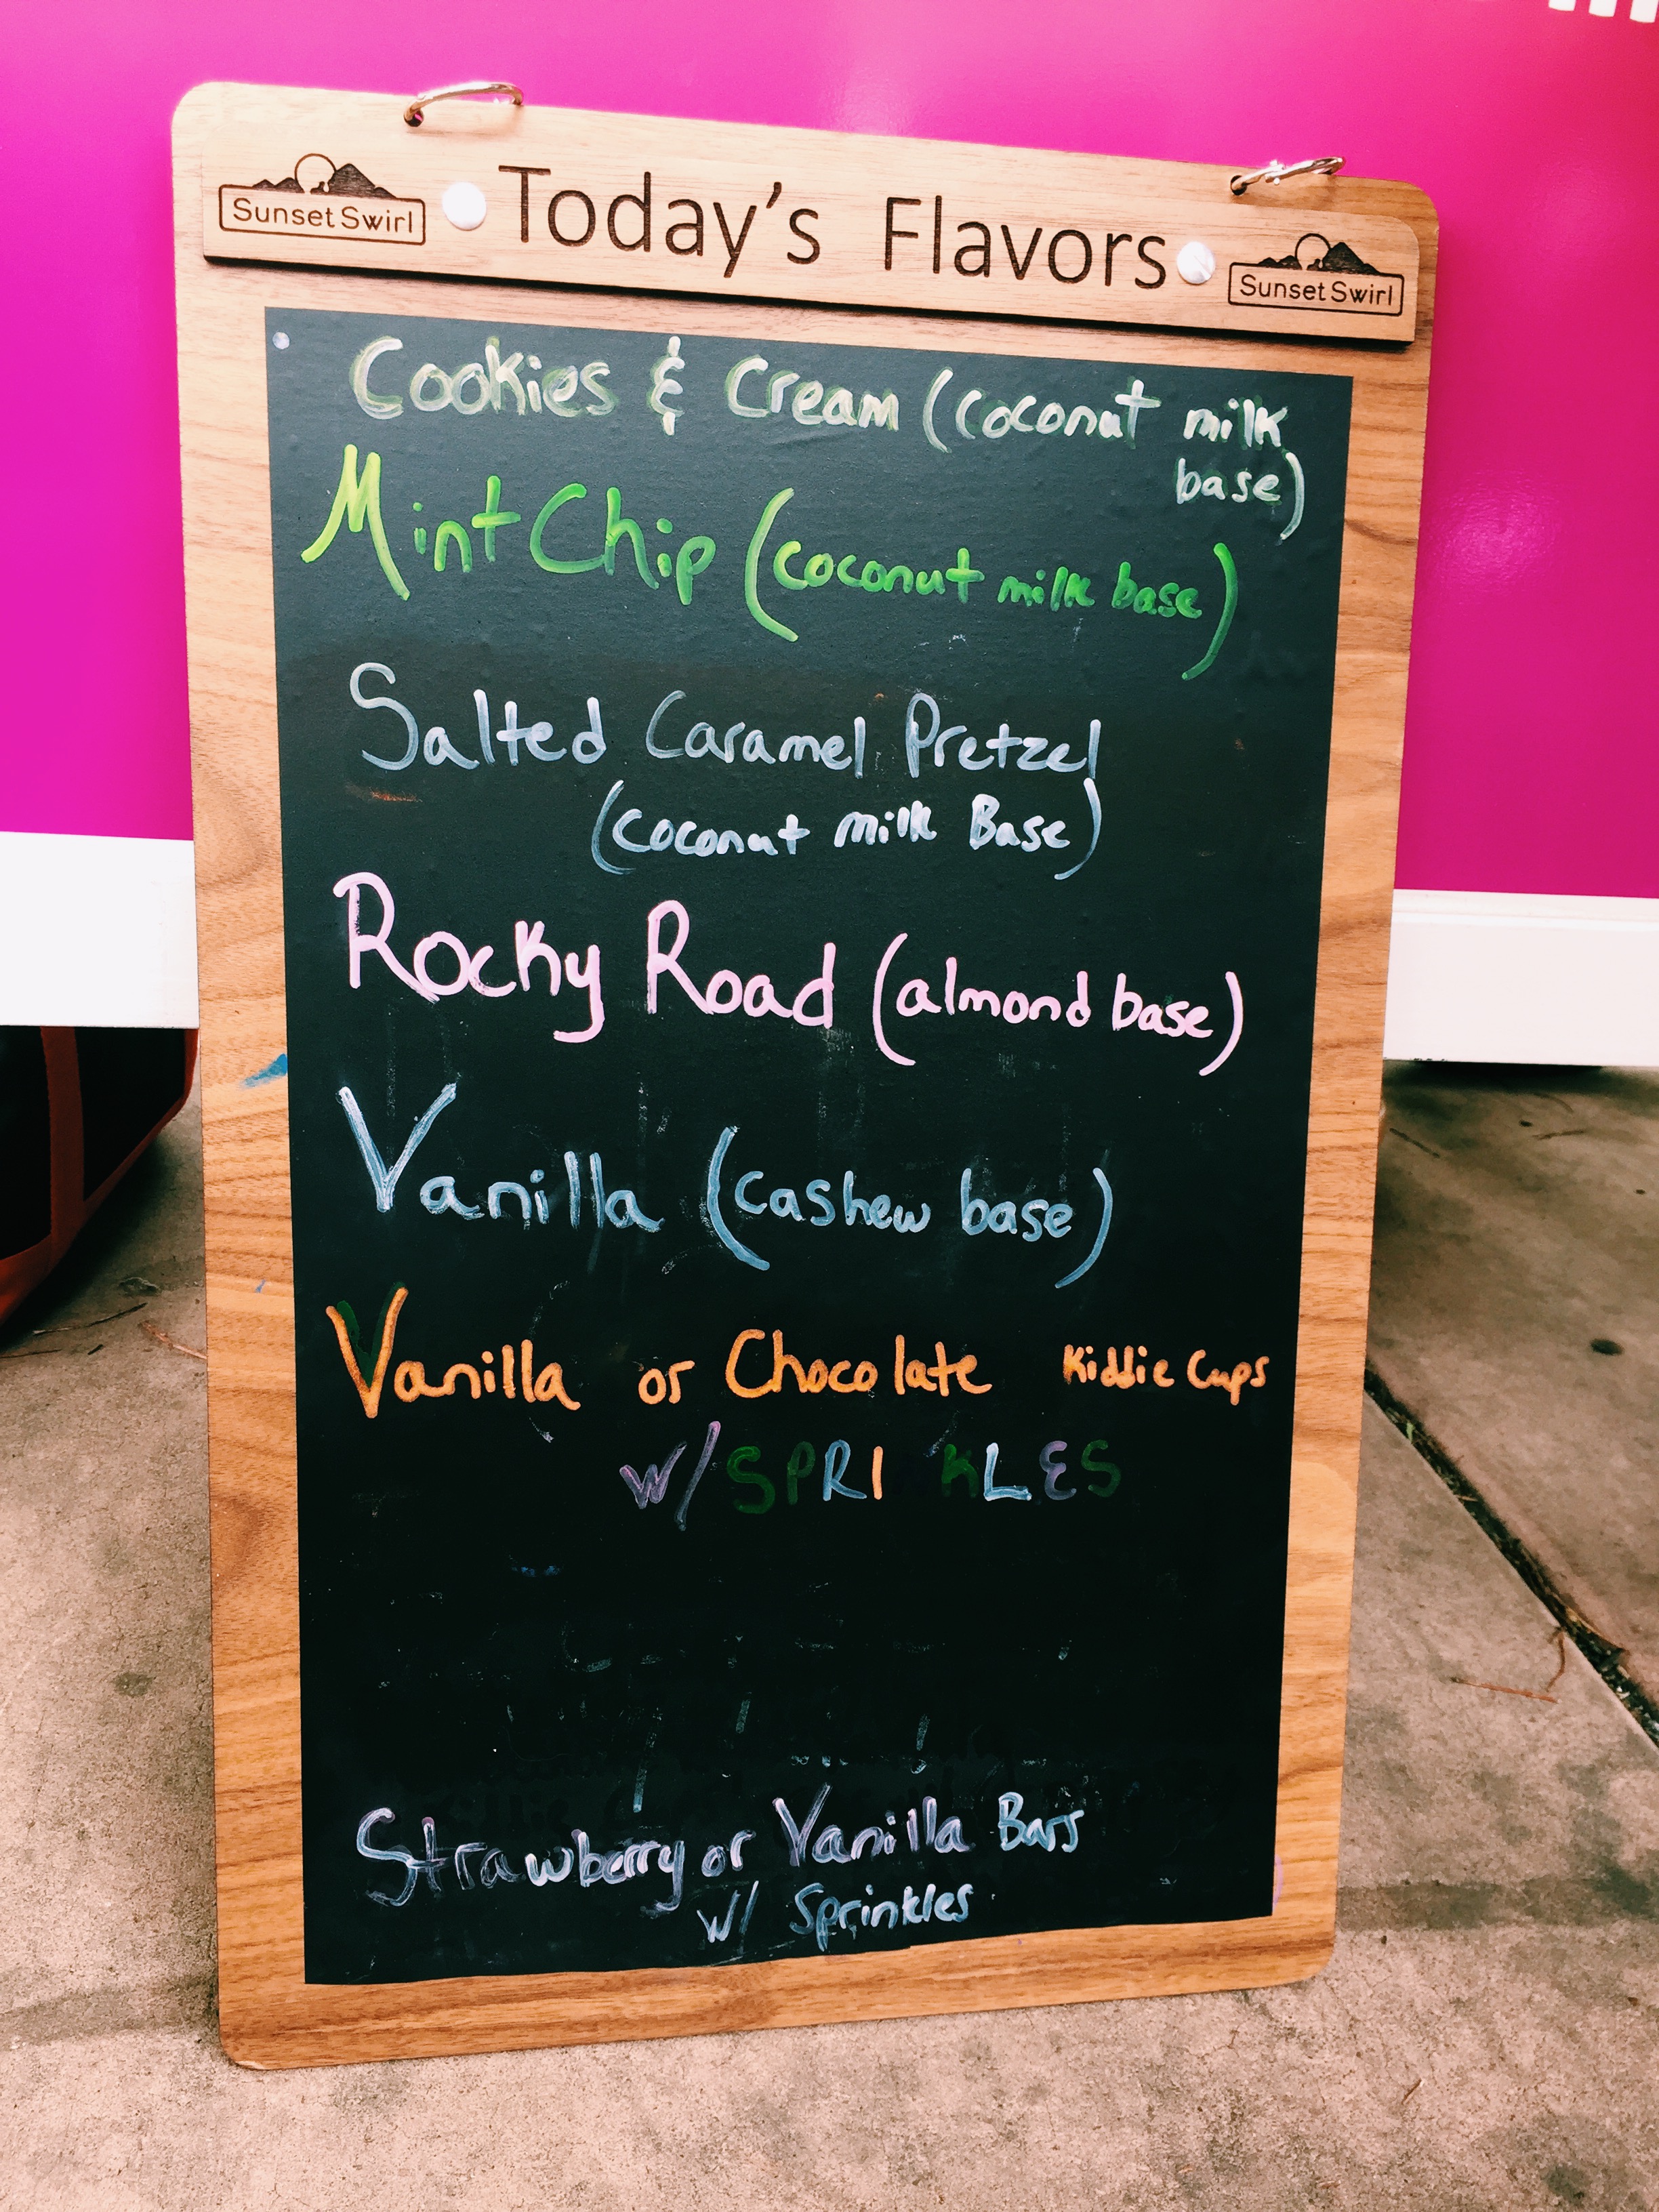 SunsetSwirl Today's Flavors SunsetSwirl
Cookies & Cream (coconut milk
base)
Mint Chip (coconut milk base)
Salted Caramel Pretzel
(coconut milk Base)
Rocky Road (almond base)
Vanilla (cashew base)
Vanilla or Chocolate Kiddie Cups
w/ SPRINKLES
Strawberry or Vanilla Bars
w/ Sprinkles